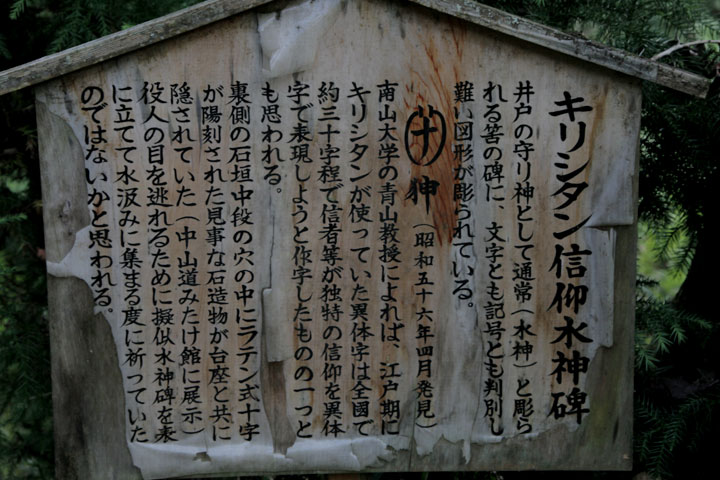 キリシタン信仰水神碑
井戸の守り神として通常(水神)と彫ら
れる筈の碑に、文字とも記号とも判別し
難い図形が彫られている。
(昭和五十六年四月発見)
南山大学の青山教授によれば、江戸期に
キリシタンが使っていた異体字は全国で
約三十字程で信者等が独特の信仰を異体
字で表現しようと作字したものの一つと
も思われる。
裏側の石垣中段の穴の中にラテン式十字
が陽刻された見事な石造物が台座と共に
隠されていた(中山道みたけ館に展示)
役人の目を逃れるために擬似水神碑を表
に立てて水汲みに集まる度に祈っていた
のではないかと思われる。